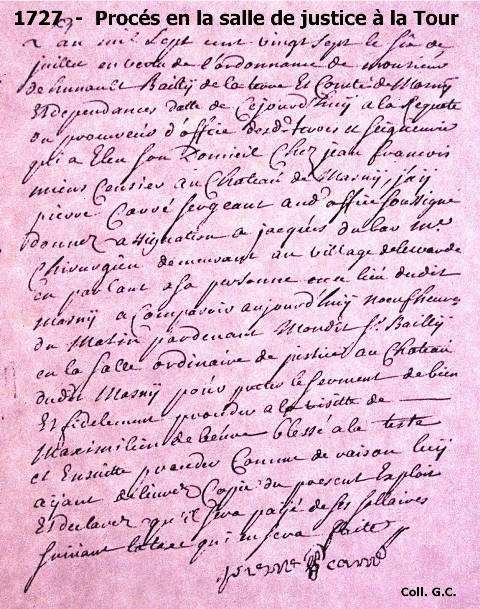 1727 - Procés en la salle de justice à la Tour
L'an mil Sept cent vingt sept le six de
juillet en vertu de l'ordonnance de monsieur
de hunault Bailly de la terre Et Comté de Masny
Et dependances datte de Cejourd'huy a la Requete
du procureur d'office desdts terres et Seigneurie
qui a Eleu son Domicil Chez jean francois
miens Censier au Chateau de Masny, jay
pierre Carré Sergeant audt office Soussigné
donnez assignation a jacques du mre
Chirurgien demeurant au village de Lewarde
en parlant a sa personne en ce lieu dudit
Masny a Comparoir aujourd'huy neuf heures
du Matin pardevant Mondit Sr Bailly
en la Salle ordinaire de justice au Chateau
dudit Masny pour preter le Serment de bien
Et fidelement proceder a la visitte de
Maximilien de blessé a la teste
et Ensuitte proceder Comme de raison luy
ayant delivrez Copie du present Exploit
Et declarez qu'il Sera payé de Ses Sallaires
Suivant la taxe qui en Sera faite
pierre Carré
Coll. G.C.